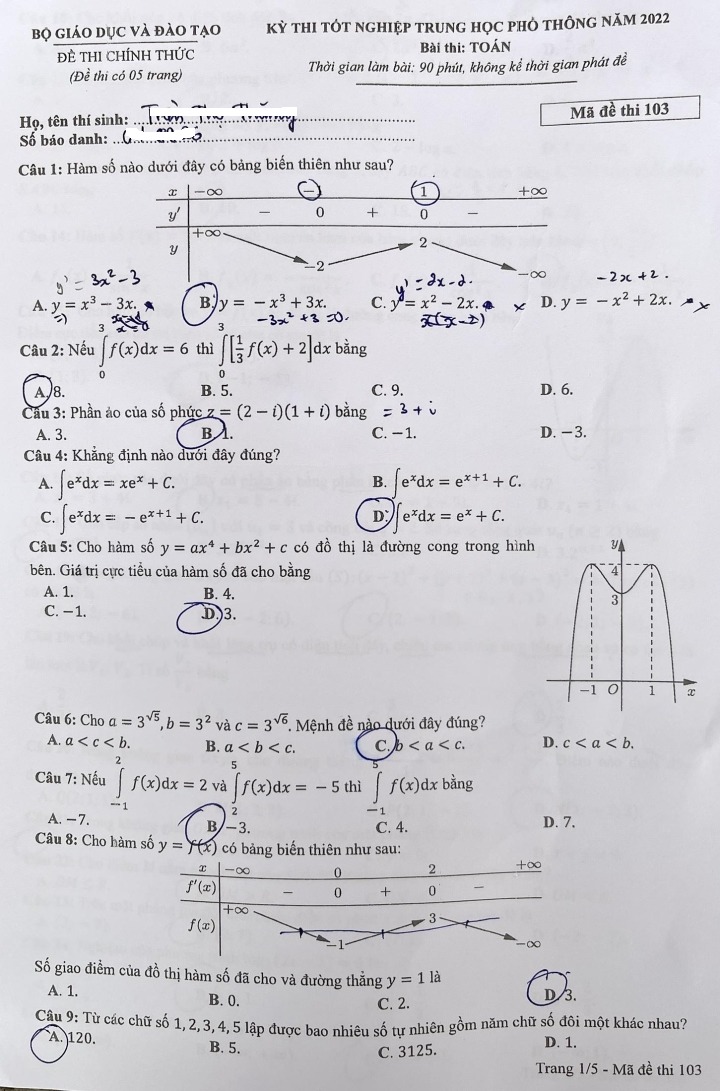 BỘ GIÁO DỤC VÀ ĐÀO TẠO
KỲ THI TỐT NGHIỆP TRUNG HỌC PHỔ THÔNG NĂM 2022
ĐỀ THI CHÍNH THỨC
Bài thi: TOÁN
(Đề thi có 05 trang)
Thời gian làm bài: 90 phút, không kể thời gian phát đề
Họ, tên thí sinh:
Mã đề thi 103
Số báo danh:
Câu 1: Hàm số nào dưới đây có bảng biến thiên như sau?
x −∞ −1 1 +∞
y' − 0 + 0 −
y +∞ −2 2 −∞
y' = 3x² − 3
y' = 2x − 2.
−2x + 2.
A. y = x³ − 3x. B. y = −x³ + 3x. C. y = x² − 2x. D. y = −x² + 2x.
−3x² + 3 = 0.
x(x−2)
Câu 2: Nếu ∫₀³ f(x)dx = 6 thì ∫₀³ [1/3 f(x) + 2]dx bằng
A. 8. B. 5. C. 9. D. 6.
Câu 3: Phần ảo của số phức z = (2 − i)(1 + i) bằng = 3 + i
A. 3. B. 1. C. −1. D. −3.
Câu 4: Khẳng định nào dưới đây đúng?
A. ∫eˣdx = xeˣ + C. B. ∫eˣdx = eˣ⁺¹ + C.
C. ∫eˣdx = −eˣ⁺¹ + C. D. ∫eˣdx = eˣ + C.
Câu 5: Cho hàm số y = ax⁴ + bx² + c có đồ thị là đường cong trong hình
bên. Giá trị cực tiểu của hàm số đã cho bằng
A. 1. B. 4.
C. −1. D. 3.
y
4
3
−1 O 1 x
Câu 6: Cho a = 3^√5, b = 3² và c = 3^√6. Mệnh đề nào dưới đây đúng?
A. a < c < b. B. a < b < c. C. b < a < c. D. c < a < b.
Câu 7: Nếu ∫₋₁² f(x)dx = 2 và ∫₂⁵ f(x)dx = −5 thì ∫₋₁⁵ f(x)dx bằng
A. −7. B. −3. C. 4. D. 7.
Câu 8: Cho hàm số y = f(x) có bảng biến thiên như sau:
x −∞ 0 2 +∞
f'(x) − 0 + 0 −
f(x) +∞ −1 3 −∞
Số giao điểm của đồ thị hàm số đã cho và đường thẳng y = 1 là
A. 1. B. 0. C. 2. D. 3.
Câu 9: Từ các chữ số 1, 2, 3, 4, 5 lập được bao nhiêu số tự nhiên gồm năm chữ số đôi một khác nhau?
A. 120. B. 5. C. 3125. D. 1.
Trang 1/5 - Mã đề thi 103